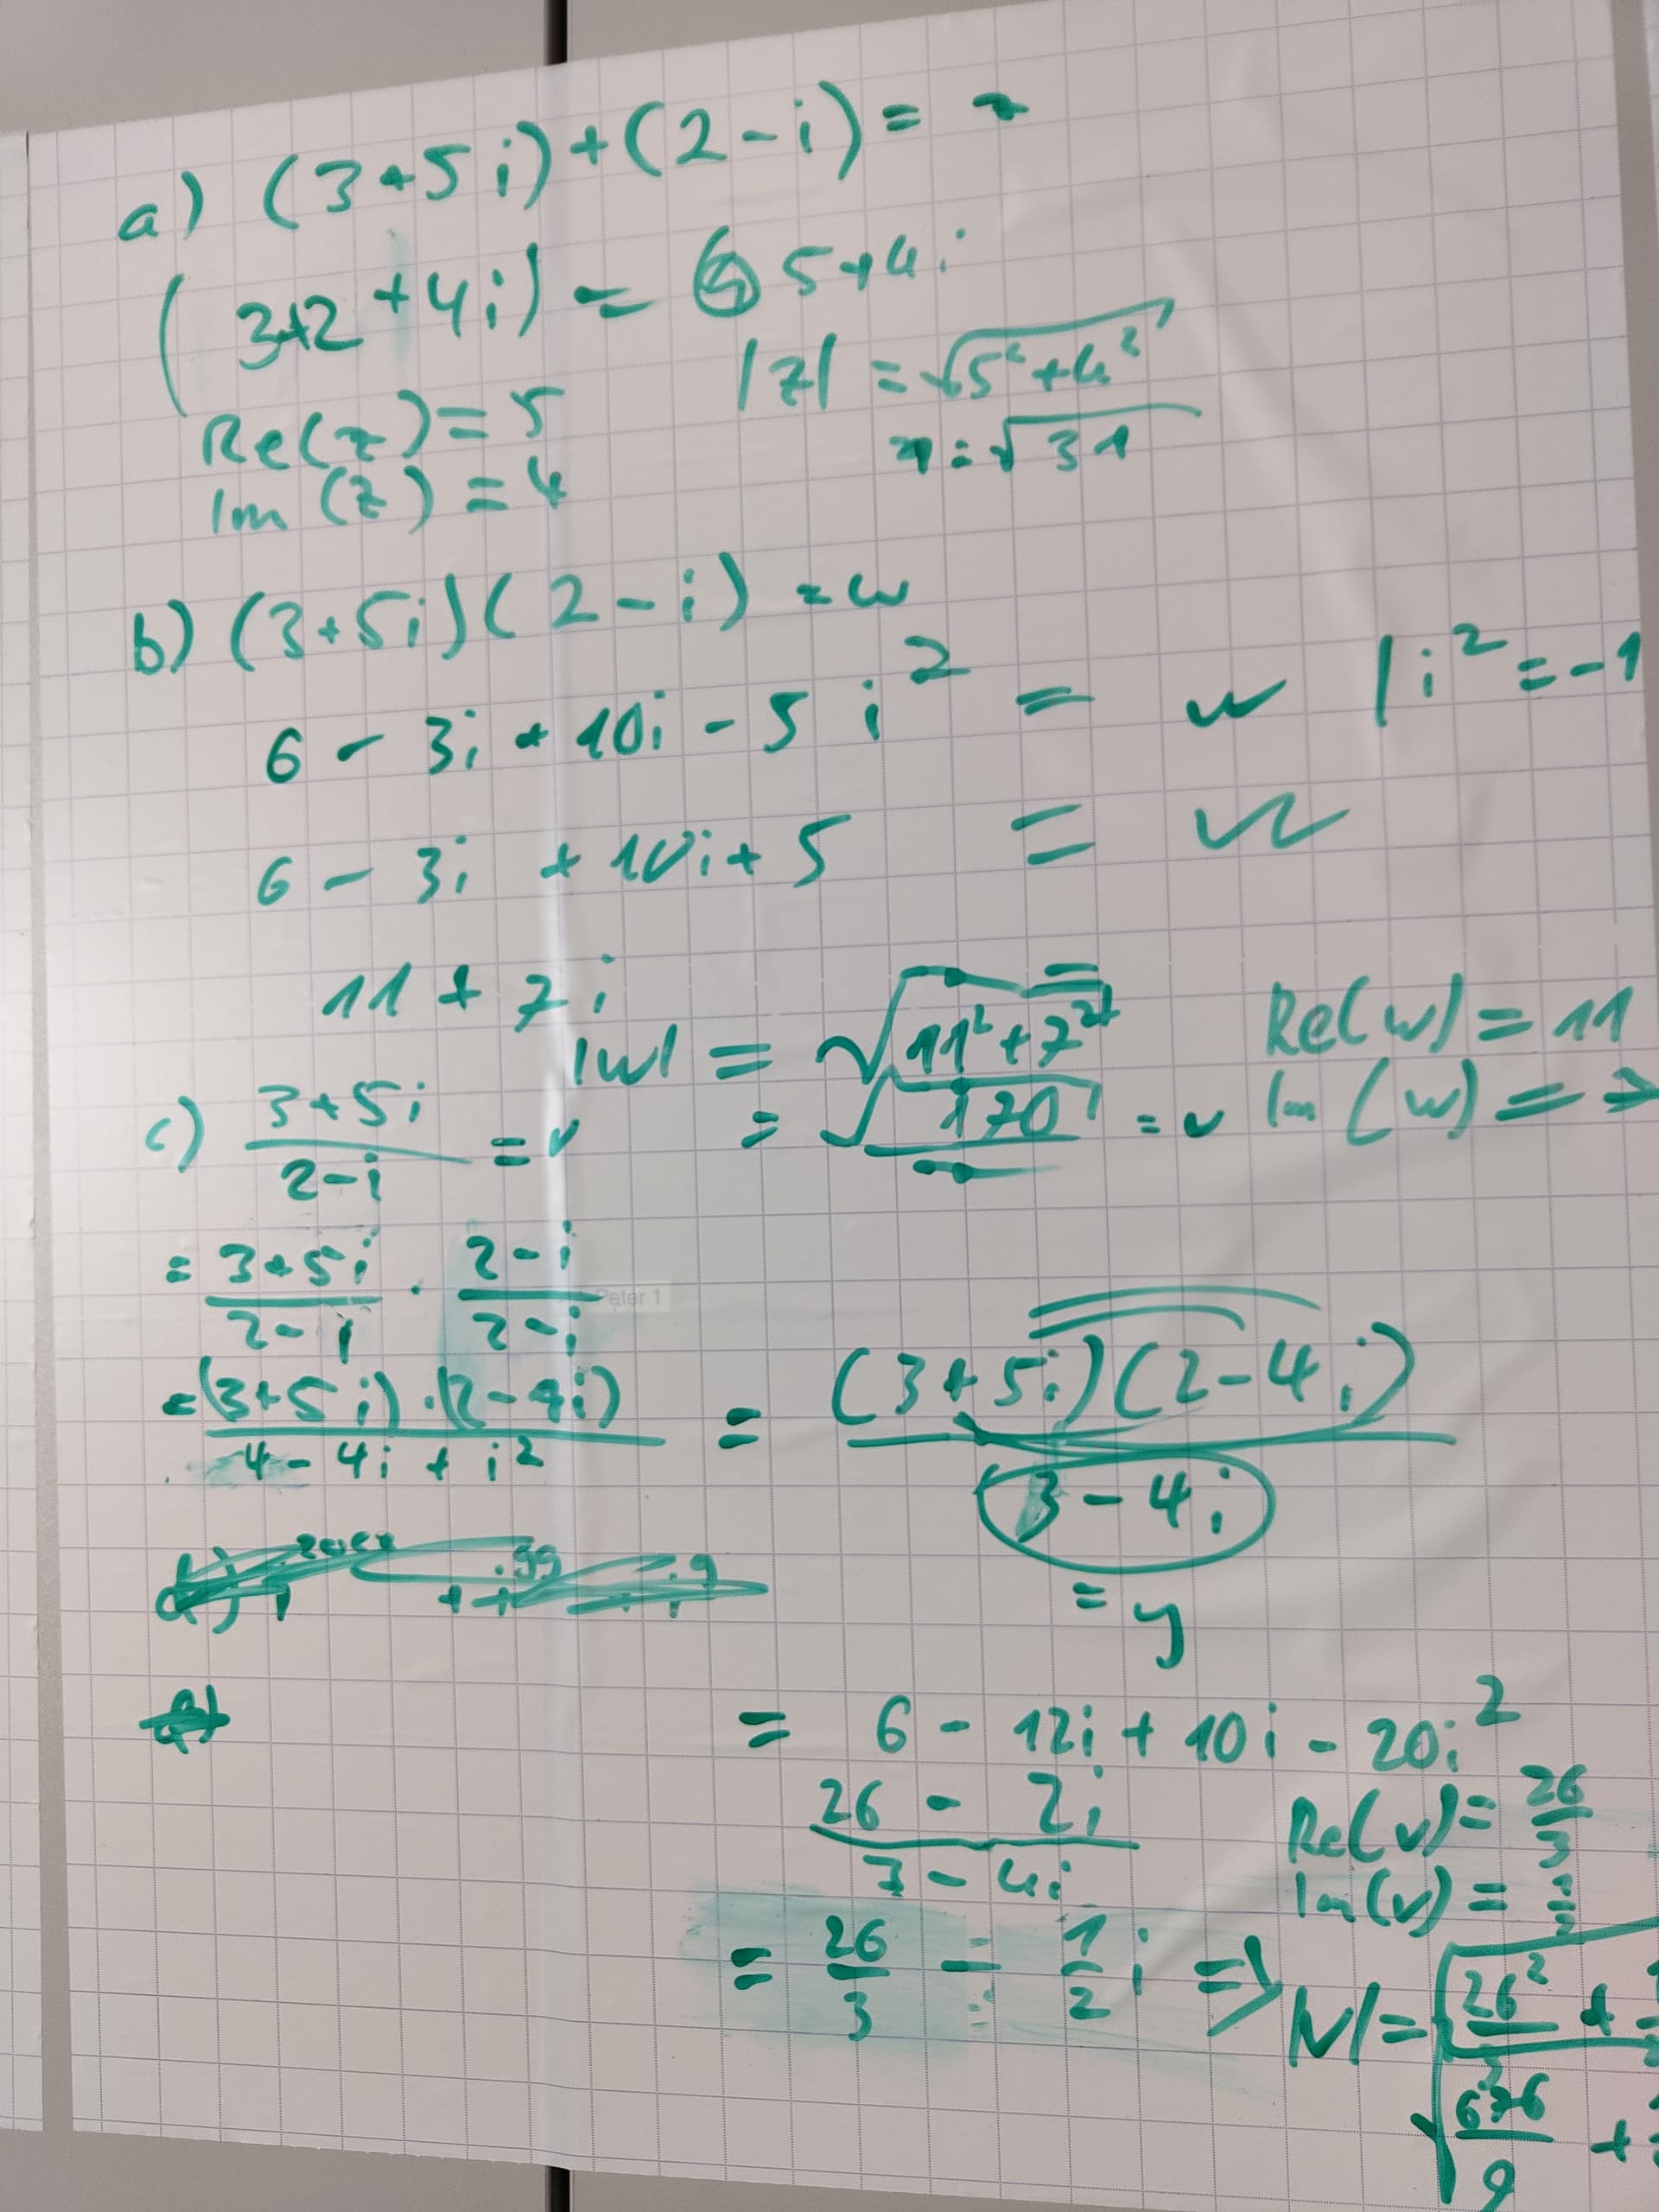 a) (3+5i)+(2-i)= z
(3+2 +4i) = 5+4i
|z| = √5²+4²
r = √31
Re(z)=5
Im(z)=4
b) (3+5i)(2-i) = w
6 - 3i + 10i - 5 i² = w |i²=-1
6 - 3i + 10i + 5 = w
11 + 7i
|w| = √11²+7²
= √170 = r
Re(w)=11
Im(w)=7
c) 3+5i / 2-i = v
= 3+5i / 2-i · 2-i / 2-i
= (3+5i)·(2-4i) / 4-4i+i² = (3+5i)(2-4i) / 3-4i
= y
= 6 - 12i + 10i - 20i²
26 - 2i / 3-4i
Re(v)= 26/3
Im(v)= 1/2
= 26/3 - 1/2 i => |v| = √26²/3 +
√676/9 +
Peter 1